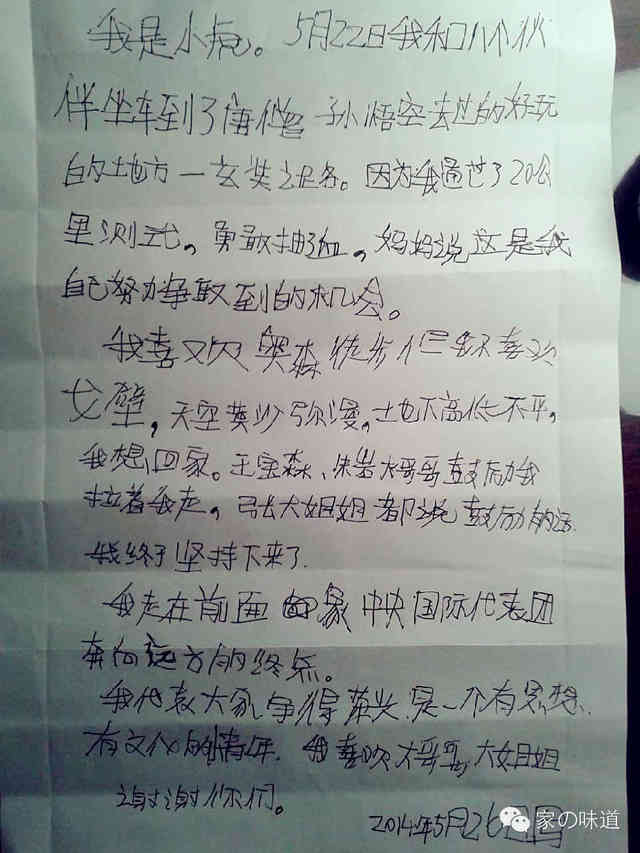 我是小虎。5月22日我和八个伙
伴坐车到了唐僧 孙悟空去过的好玩
的地方一玄奘之路。因为我通过了20公
里测试,勇敢抽血,妈妈说这是我
自己努力争取到的机会。
我喜欢奥森徒步但是不喜欢
戈壁,天空黄沙弥漫,土地下高低不平,
我想回家。王宝森、朱岩大哥哥鼓励我
拉着我走,张大姐姐都说鼓励的话
我终于坚持下来了.
我走在前面 象中央国际代表团
奔向远方的终点。
我代表大家争得荣兴 是一个有思想.
有文化的情年. 我喜欢大哥哥,大姐姐
谢谢你们。
2014年5月26日
家の味道